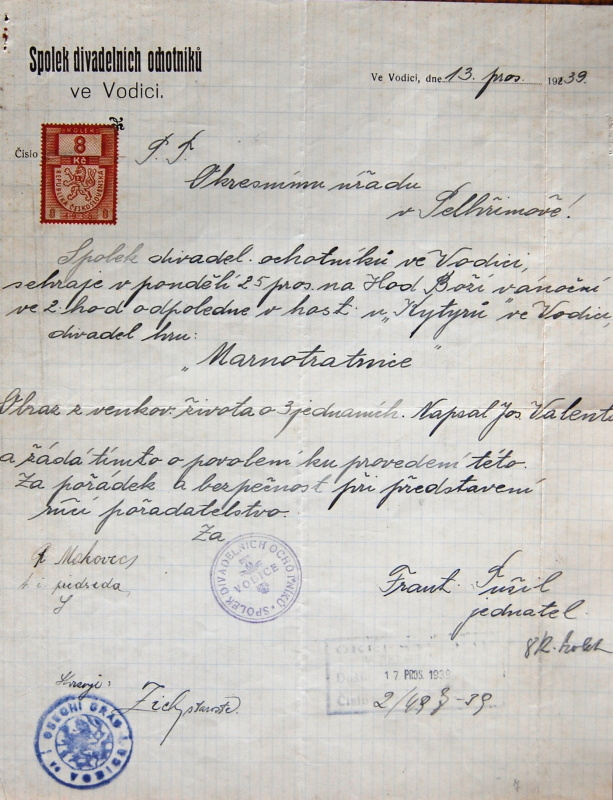 Spolek divadelních ochotníků
ve Vodici.
Ve Vodici, dne 13. pros. 1939.
Číslo
KOLEK
8
Kč
REPUBLIKA ČESKOSLOVENSKÁ
8 8
P. T.
Okresnímu úřadu
v Pelhřimově!
Spolek divadel. ochotníků ve Vodici,
sehraje v pondělí 25 pros. na Hod Boží vánoční
ve 2. hod odpoledne v host. u „Kytyrů" ve Vodici,
divadel hru:
„Marnotratnice"
Obraz z venkov. života o 3 jednáních. Napsal Jos. Valenta
a žádá tímto o povolení ku provedení této.
Za pořádek a bezpečnost při představení
ručí pořadatelstvo.
Za
Makovec
předseda
SPOLEK DIVADELNÍCH OCHOTNÍKŮ
VODICE
Frant. Pušil
jednatel.
17 PROS. 1939
Číslo
Zich starosta.
OBECNÍ ÚŘAD
VODICE